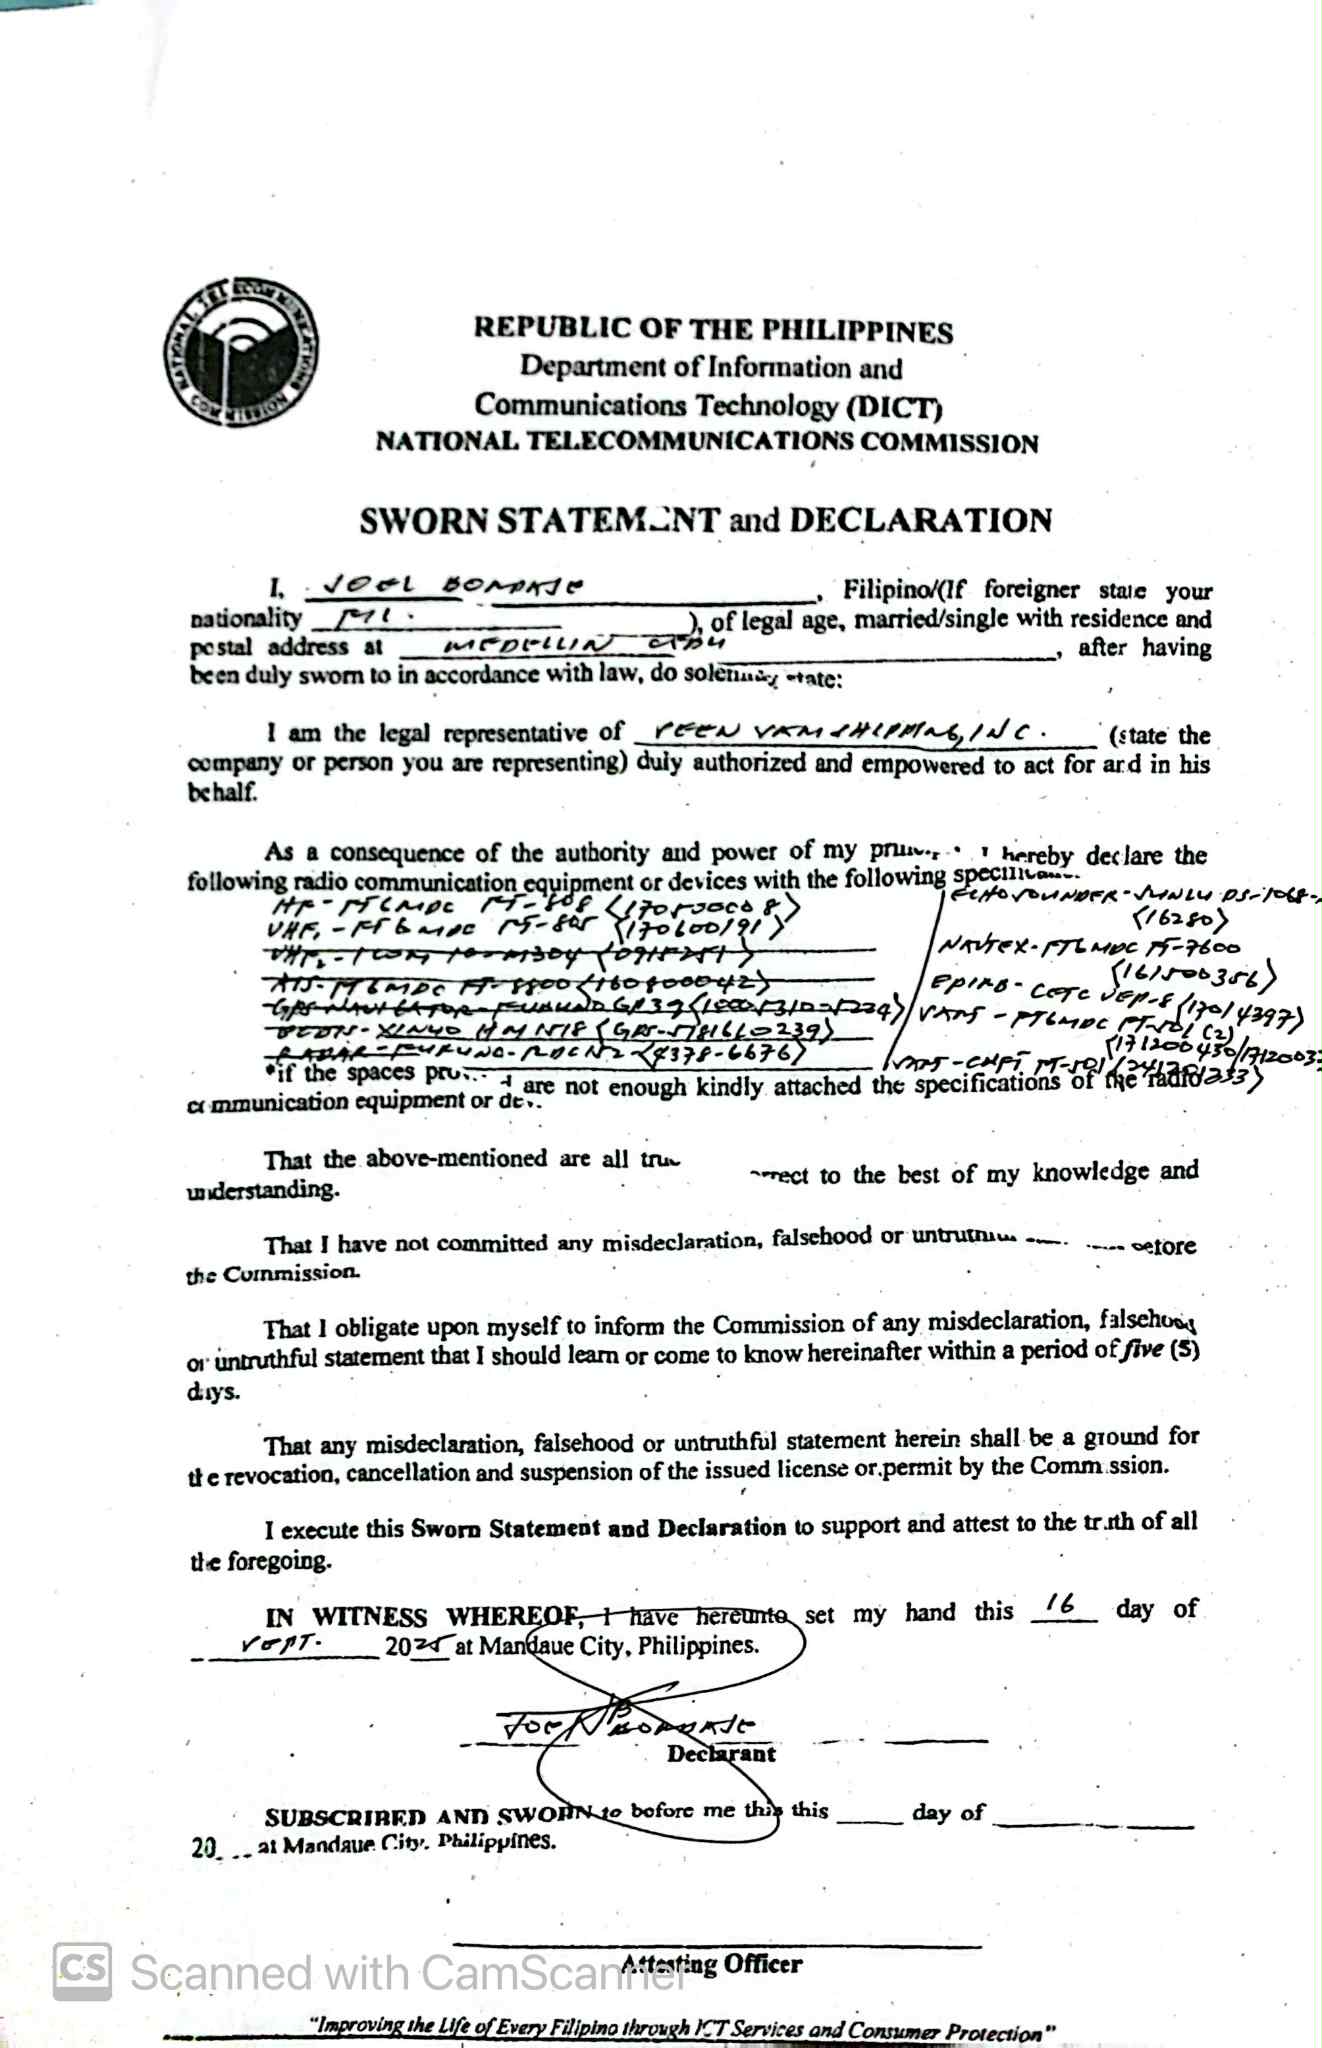 NATIONAL TELECOMMUNICATIONS COMMISSION
REPUBLIC OF THE PHILIPPINES
Department of Information and
Communications Technology (DICT)
NATIONAL TELECOMMUNICATIONS COMMISSION
SWORN STATEMENT and DECLARATION
I, JOEL , Filipino/(If foreigner state your
nationality ), of legal age, married/single with residence and
postal address at MEDELLIN CEBU , after having
been duly sworn to in accordance with law, do solemnly state:
I am the legal representative of SHIPPING, INC. (state the
company or person you are representing) duly authorized and empowered to act for and in his
behalf.
As a consequence of the authority and power of my I hereby declare the
following radio communication equipment or devices with the following
HF - FT6MDC FT-808
VHF, - FT6MDC FT-805 <170600191>
VHF2 - ICOM
AIS - FT6MDC FT-8800 <160800042>
GPS NAVIGATOR - FURUNO GP39
XINUO HM
RADAR - FURUNO - <4378-6676>
ECHOSOUNDER -
<16280>
NAVTEX - FT6MDC FT-7600
<161500356>
EPIRB - <17014397>
FT6MDC (2)
*if the spaces are not enough kindly attached the specifications of the radio
communication equipment or
That the above-mentioned are all correct to the best of my knowledge and
understanding.
That I have not committed any misdeclaration, falsehood or before
the Commission.
That I obligate upon myself to inform the Commission of any misdeclaration, falsehood
or untruthful statement that I should learn or come to know hereinafter within a period of five (5)
days.
That any misdeclaration, falsehood or untruthful statement herein shall be a ground for
the revocation, cancellation and suspension of the issued license or permit by the Commission.
I execute this Sworn Statement and Declaration to support and attest to the truth of all
the foregoing.
IN WITNESS WHEREOF, I have hereunto set my hand this 16 day of
SEPT. 2025 at Mandaue City, Philippines.
JOEL
Declarant
SUBSCRIBED AND SWORN to before me this this day of
20 at Mandaue City, Philippines.
Attesting Officer
CS Scanned with CamScanner
"Improving the Life of Every Filipino through ICT Services and Consumer Protection"